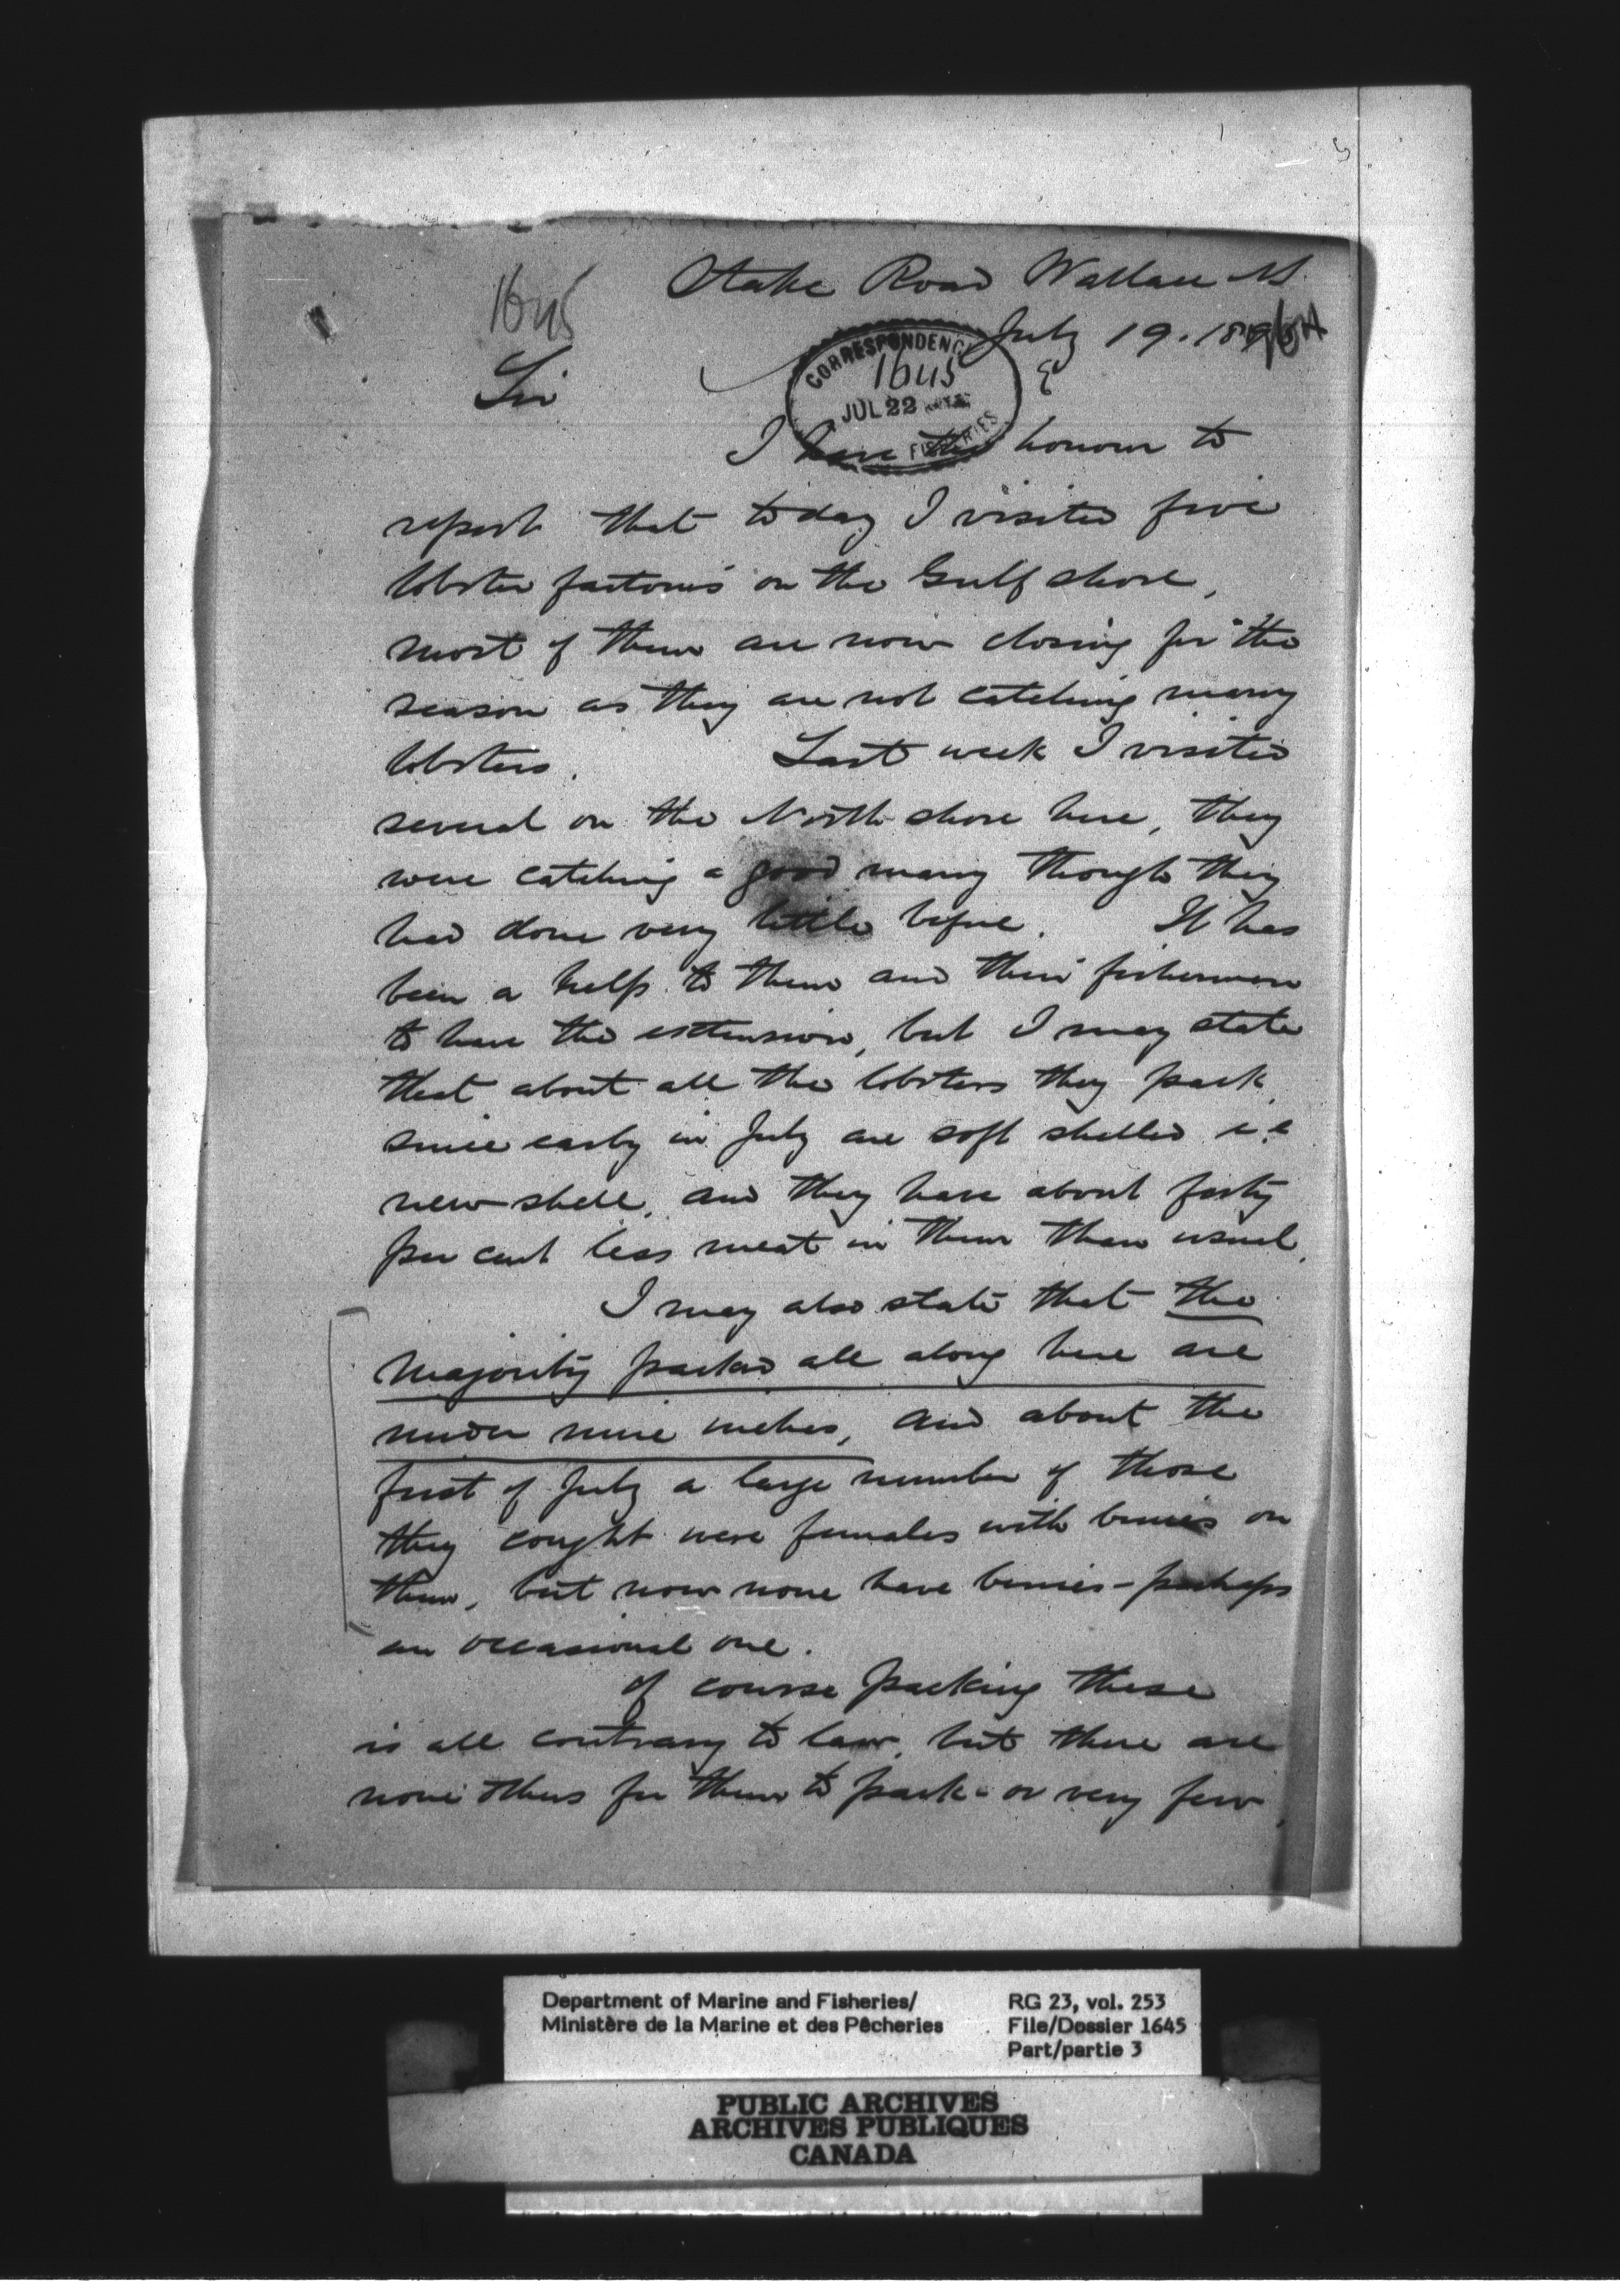 1645
Stake Road Wallace NS.
July 19. 189
Sir
CORRESPONDENCE
1645
JUL 22
FISHERIES
I have the honour to
report that today I visited five
lobster factories on the Gulf shore,
most of them are now closing for the
season as they are not catching many
lobsters. Last week I visited
several on the North shore here, they
were catching a good many though they
had done very little before. It has
been a help to them and their fishermen
to have the extension, but I may state
that about all the lobsters they pack
since early in July are soft shelled i.e
new shell, and they have about forty
per cent less meat in them than usual.
I may also state that the
majority packed all along here are
under nine inches, and about the
first of July a large number of those
they caught were females with berries on
them, but now none have berries - perhaps
an occasional one.
Of course packing these
is all contrary to law, but there are
none others for them to pack - or very few,
Department of Marine and Fisheries/
Ministère de la Marine et des Pêcheries
RG 23, vol. 253
File/Dossier 1645
Part/partie 3
PUBLIC ARCHIVES
ARCHIVES PUBLIQUES
CANADA